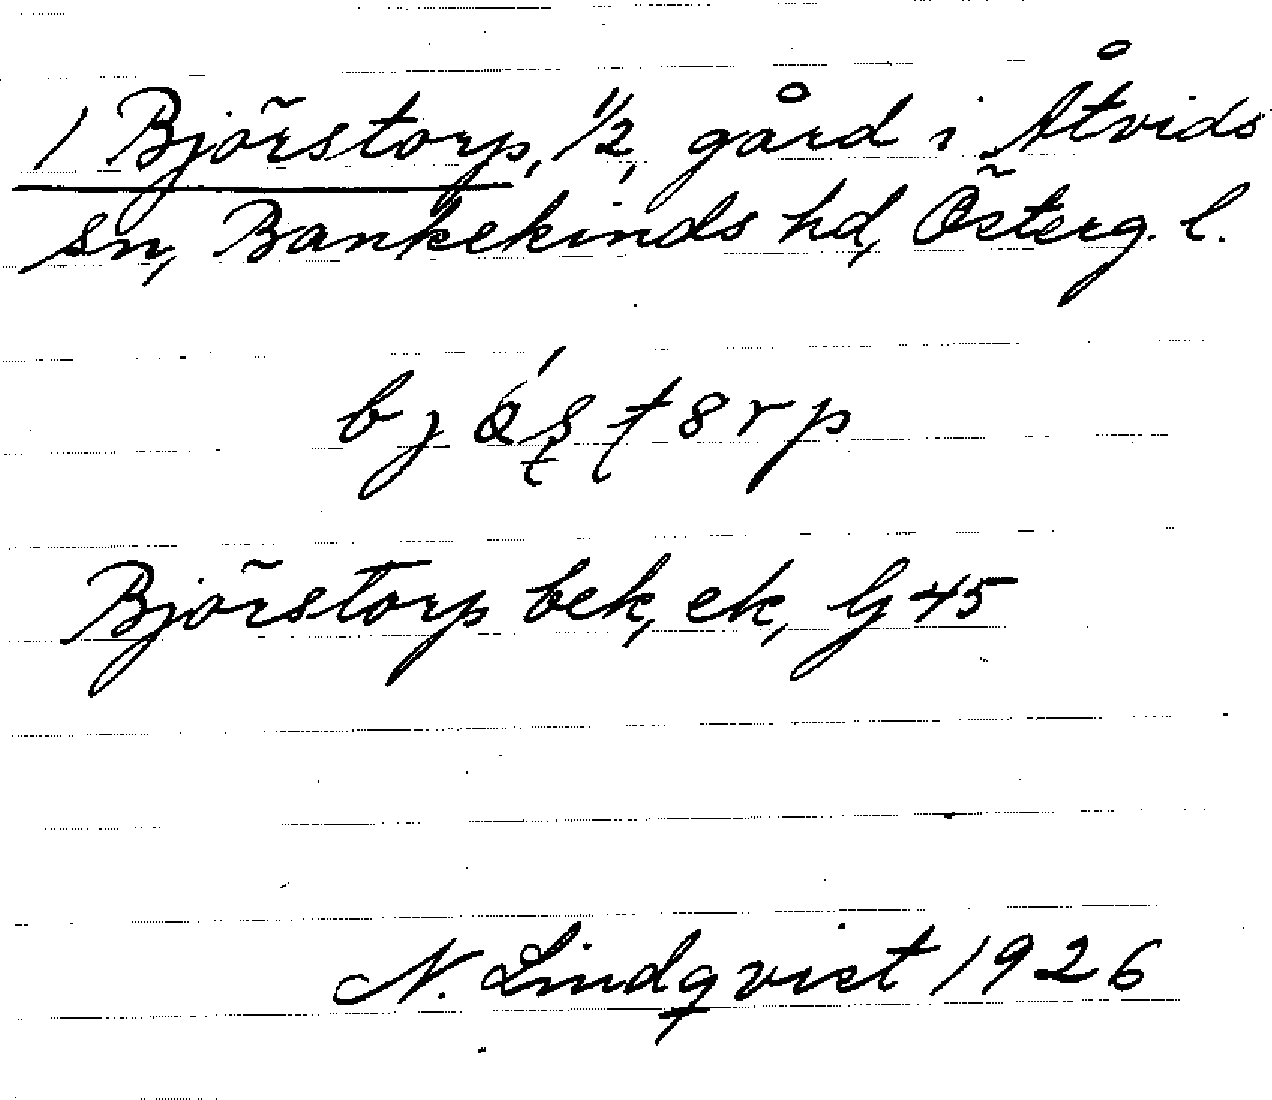 1 Björstorp, 1/2, gård i Åtvids
sn, Bankekinds hd, Österg. l.
Björstorp bek, ek, Gj 45
N. Lindqvist 1926